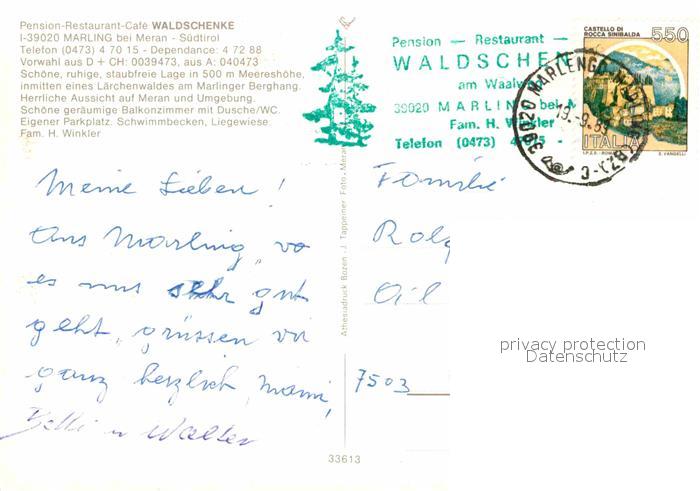 Pension-Restaurant-Café WALDSCHENKE
I-39020 MARLING bei Meran - Südtirol
Telefon (0473) 4 70 15 - Dependance: 4 72 88
Vorwahl aus D + CH: 0039473, aus A: 040473
Schöne, ruhige, staubfreie Lage in 500 m Meereshöhe,
inmitten eines Lärchenwaldes am Marlinger Berghang.
Herrliche Aussicht auf Meran und Umgebung.
Schöne geräumige Balkonzimmer mit Dusche/WC.
Eigener Parkplatz. Schwimmbecken, Liegewiese.
Fam. H. Winkler
Meine Lieben!
Aus Marling, wo
es uns sehr gut
geht, grüssen wir
ganz herzlich, Mami,
u Walter
Athesiadruck Bozen - J. Tappeiner Foto - Meran
33613
Pension — Restaurant —
WALDSCHEN
am Waalw
39020 MARLING bei M
Fam. H. Winkler
Telefon (0473) 47015 -
CASTELLO DI
ROCCA SINIBALDA
550
ITALIA
I.P.Z.S. - ROMA
E. VANGELLI
39020 MARLENGO
19.-9.89
Familie
Rolf
7503
privacy protection
Datenschutz